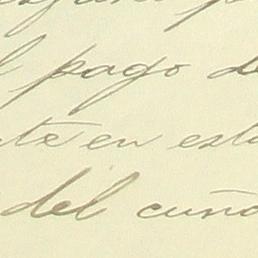 pago de
te en est
del cuño